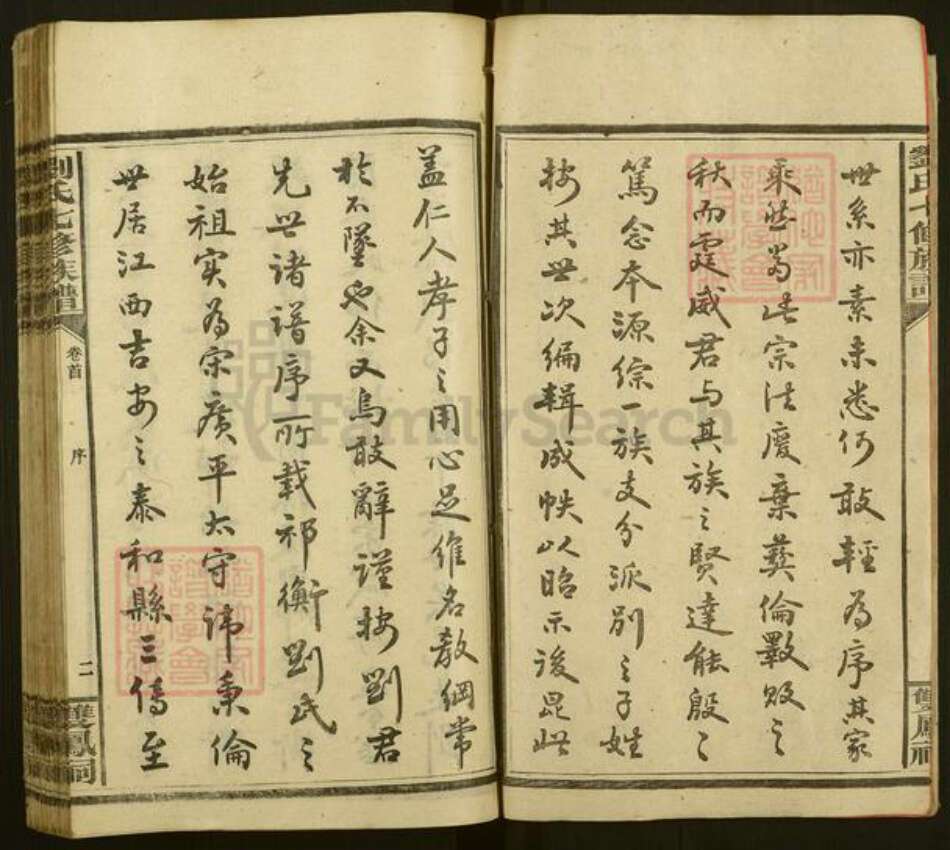 劉氏七修族譜
雙鳳祠
世系亦素未悉何敢輕為序其家
乘然當此宗法廢棄彝倫斁敗之
秋而霆威君与其族之賢達能殷〻
篤念本源綜一族支分派別之子姓
按其世次編輯成帙以昭示後昆此
蓋仁人孝子之用心足維名教綱常
於不墜也余又烏敢辭謹按劉君
先世諸譜序所載祁衡劉氏之
始祖实為宗廣平太守諱秉倫
世居江西吉安之泰和縣三傳至
劉氏七修族譜
卷首
序
二
雙鳳祠
FamilySearch